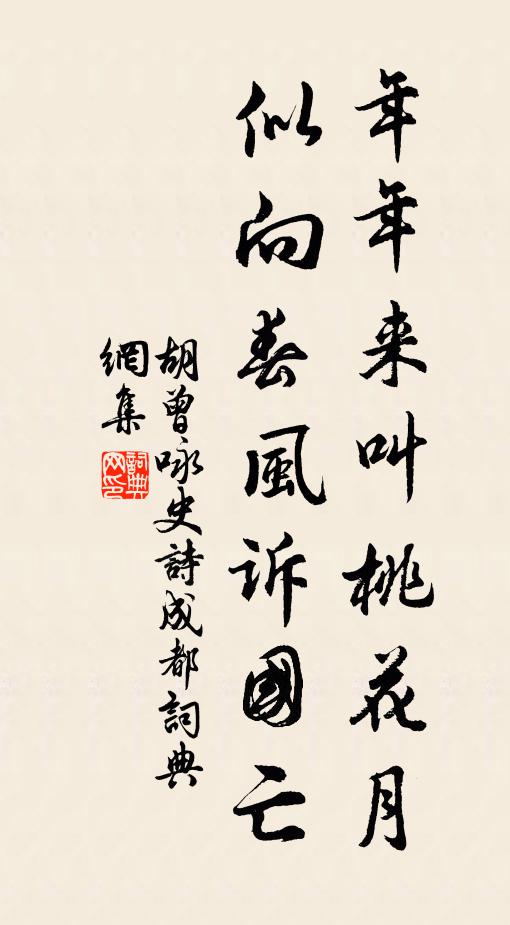 年年来叫桃花月
似向春風訴國亡
胡曾咏史詩成都詞典
網集
詞典
网印